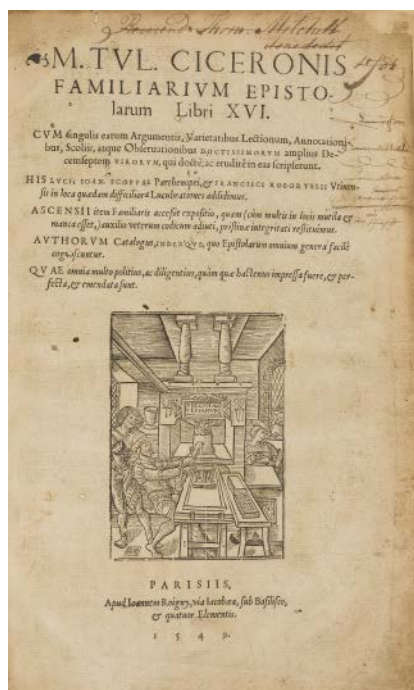 Reverend Thom.
dono dedit
M. TVL. CICERONIS
FAMILIARIVM EPISTO-
larum Libri XVI.
CVM singulis earum Argumentis, Varietatibus Lectionum, Annotationi-
bus, Scoliis, atque Observationibus DOCTISSIMORVM amplius De-
cemseptem VIRORVM, qui doctè, ac eruditè in eas scripserunt.
HIS LVCII IOAN. SCOPPAE Parthenopei, & FRANCISCI ROBORTELLI Vtinen-
sis in loca quædam difficiliora Lucubrationes addidimus.
ASCENSII item Familiaris accessit expositio, quam (cùm multis in locis mutila &
manca esset,) auxilio veterum codicum adiuti, pristinæ integritati restituimus.
AVTHORVM Catalogus, INDEXQVE, quo Epistolarum omnium genera facilè
cognoscuntur.
QVAE omnia multo politius, ac diligentius, quàm quæ hactenus impressa fuere, & per-
fecta, & emendata sunt.
PARISIIS,
Apud Ioannem Roigny, via Iacobæa, sub Basilisco,
& quatuor Elementis.
1549.